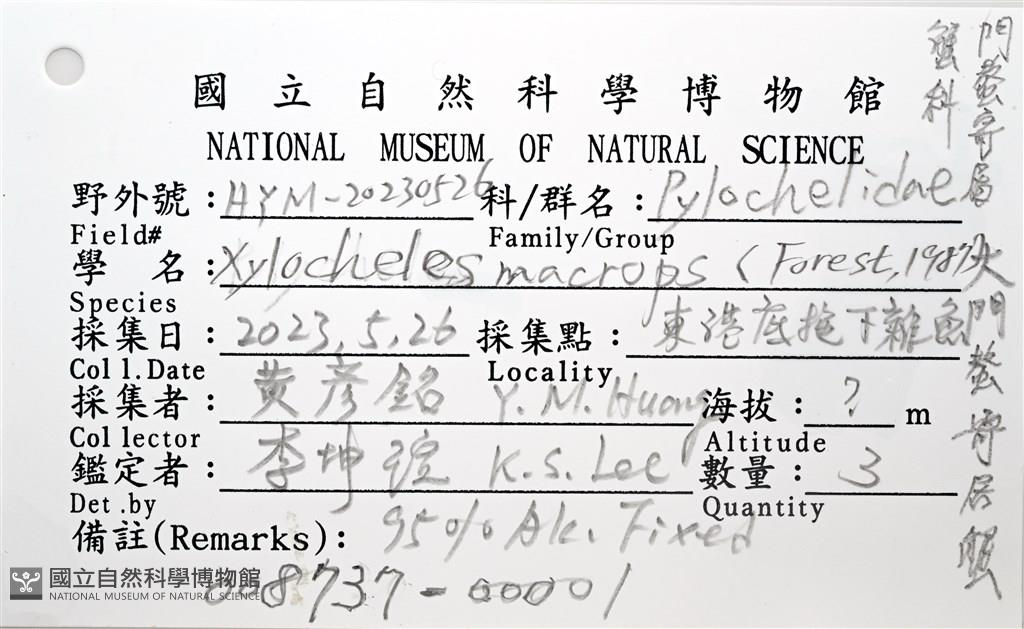 國立自然科學博物館
NATIONAL MUSEUM OF NATURAL SCIENCE
野外號：HYM-20230526 科/群名：Pylochelidae
Field# Family/Group
學 名：Xylocheles macrops (Forest, 1987)
Species
採集日：2023.5.26 採集點：東港底拖下雜魚
Coll.Date Locality
採集者：黃彥銘 Y.M.Huang 海拔：? m
Collector Altitude
鑑定者：李坤瑄 K.S. Lee 數量：3
Det.by Quantity
備註(Remarks)：95% Alc. Fixed
8737-00001
門螯寄居
蟹科
火門螯寄居蟹
國立自然科學博物館
NATIONAL MUSEUM OF NATURAL SCIENCE